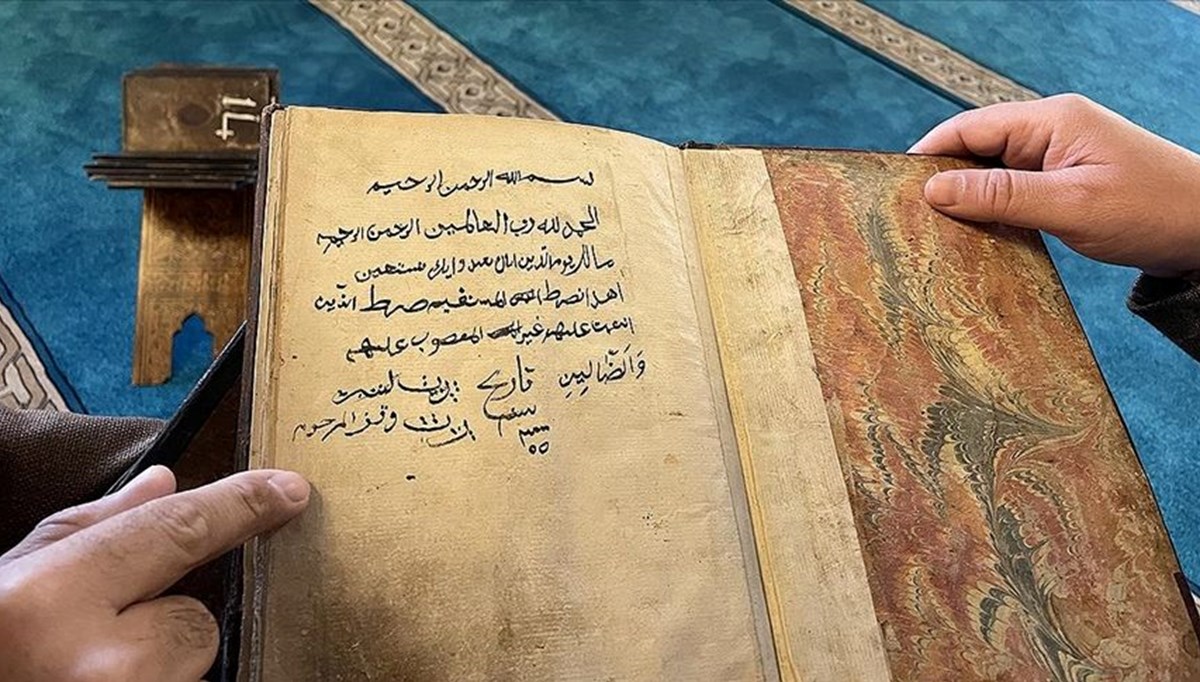 14
بسم الله الرحمن الرحيم
الحمد لله رب العالمين الرحمن الرحيم
مالك يوم الدّين اياك نعبد و اياك نستعين
اهدانصرط المستقيم صرط الذّين
انعمت عليهم غير المعصوب عليهم
وَالَضّالِين تاريخ
سنه وقف المرحوم